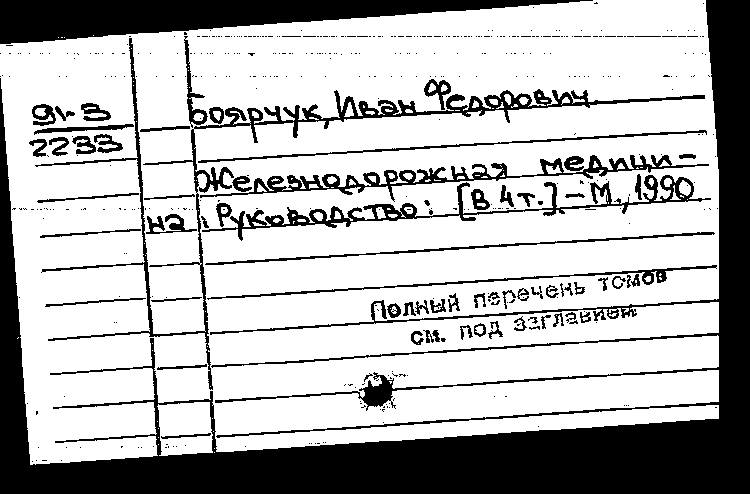 91-3
2233
Боярчук, Иван Федорович
Железнодорожная медици-
на: Руководство: [В 4 т.] – М., 1990
Полный перечень томов
см. под заглавием